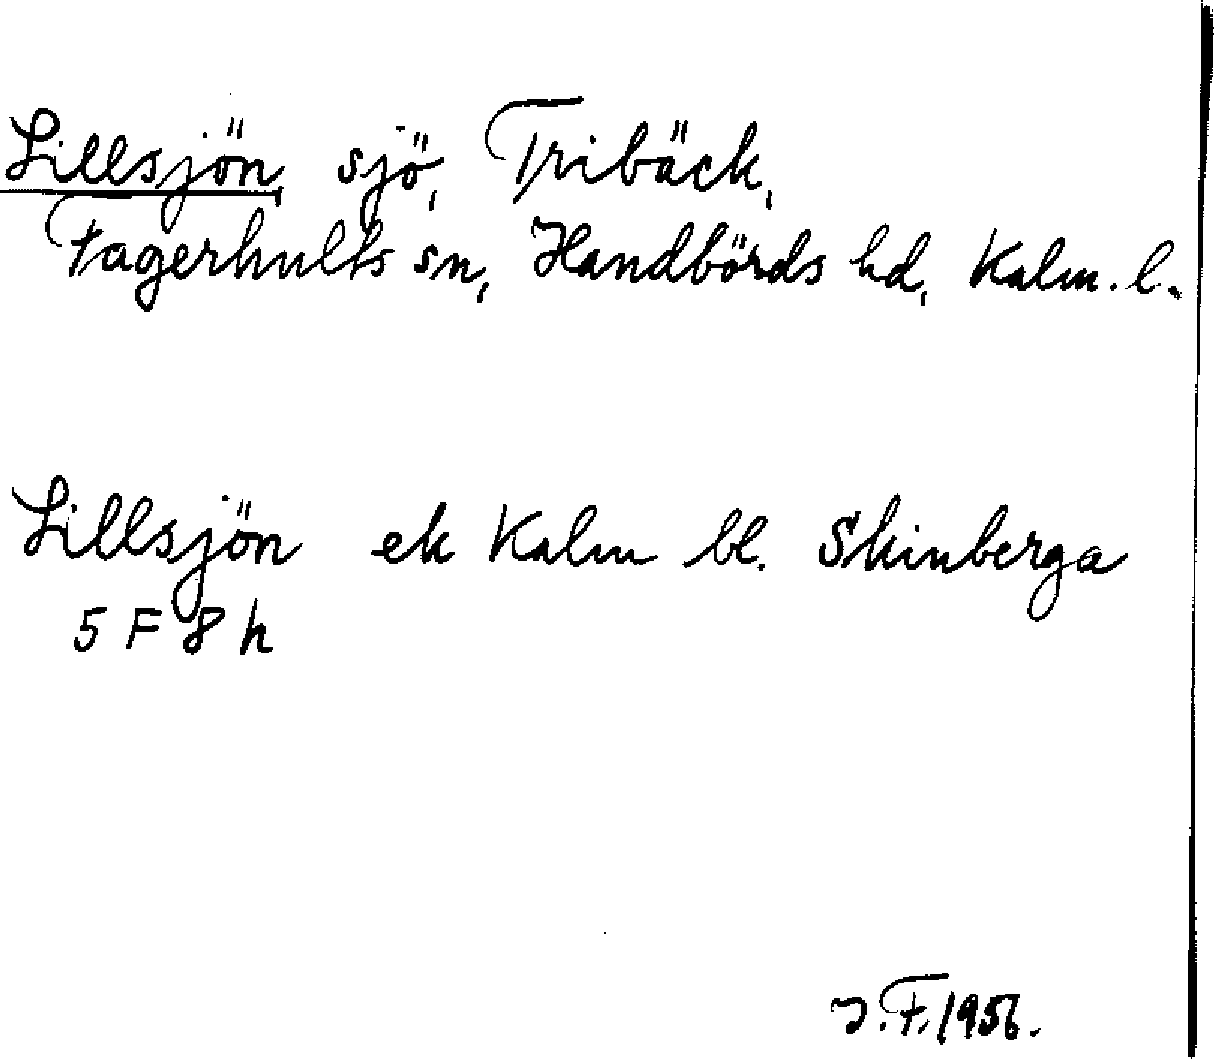 Lillsjön, sjö, Tribäck,
Fagerhults sn, Handbörds hd, Kalm. l.
Lillsjön ek Kalm bl. Skinberga
5 F 8 h
J.F. 1956.